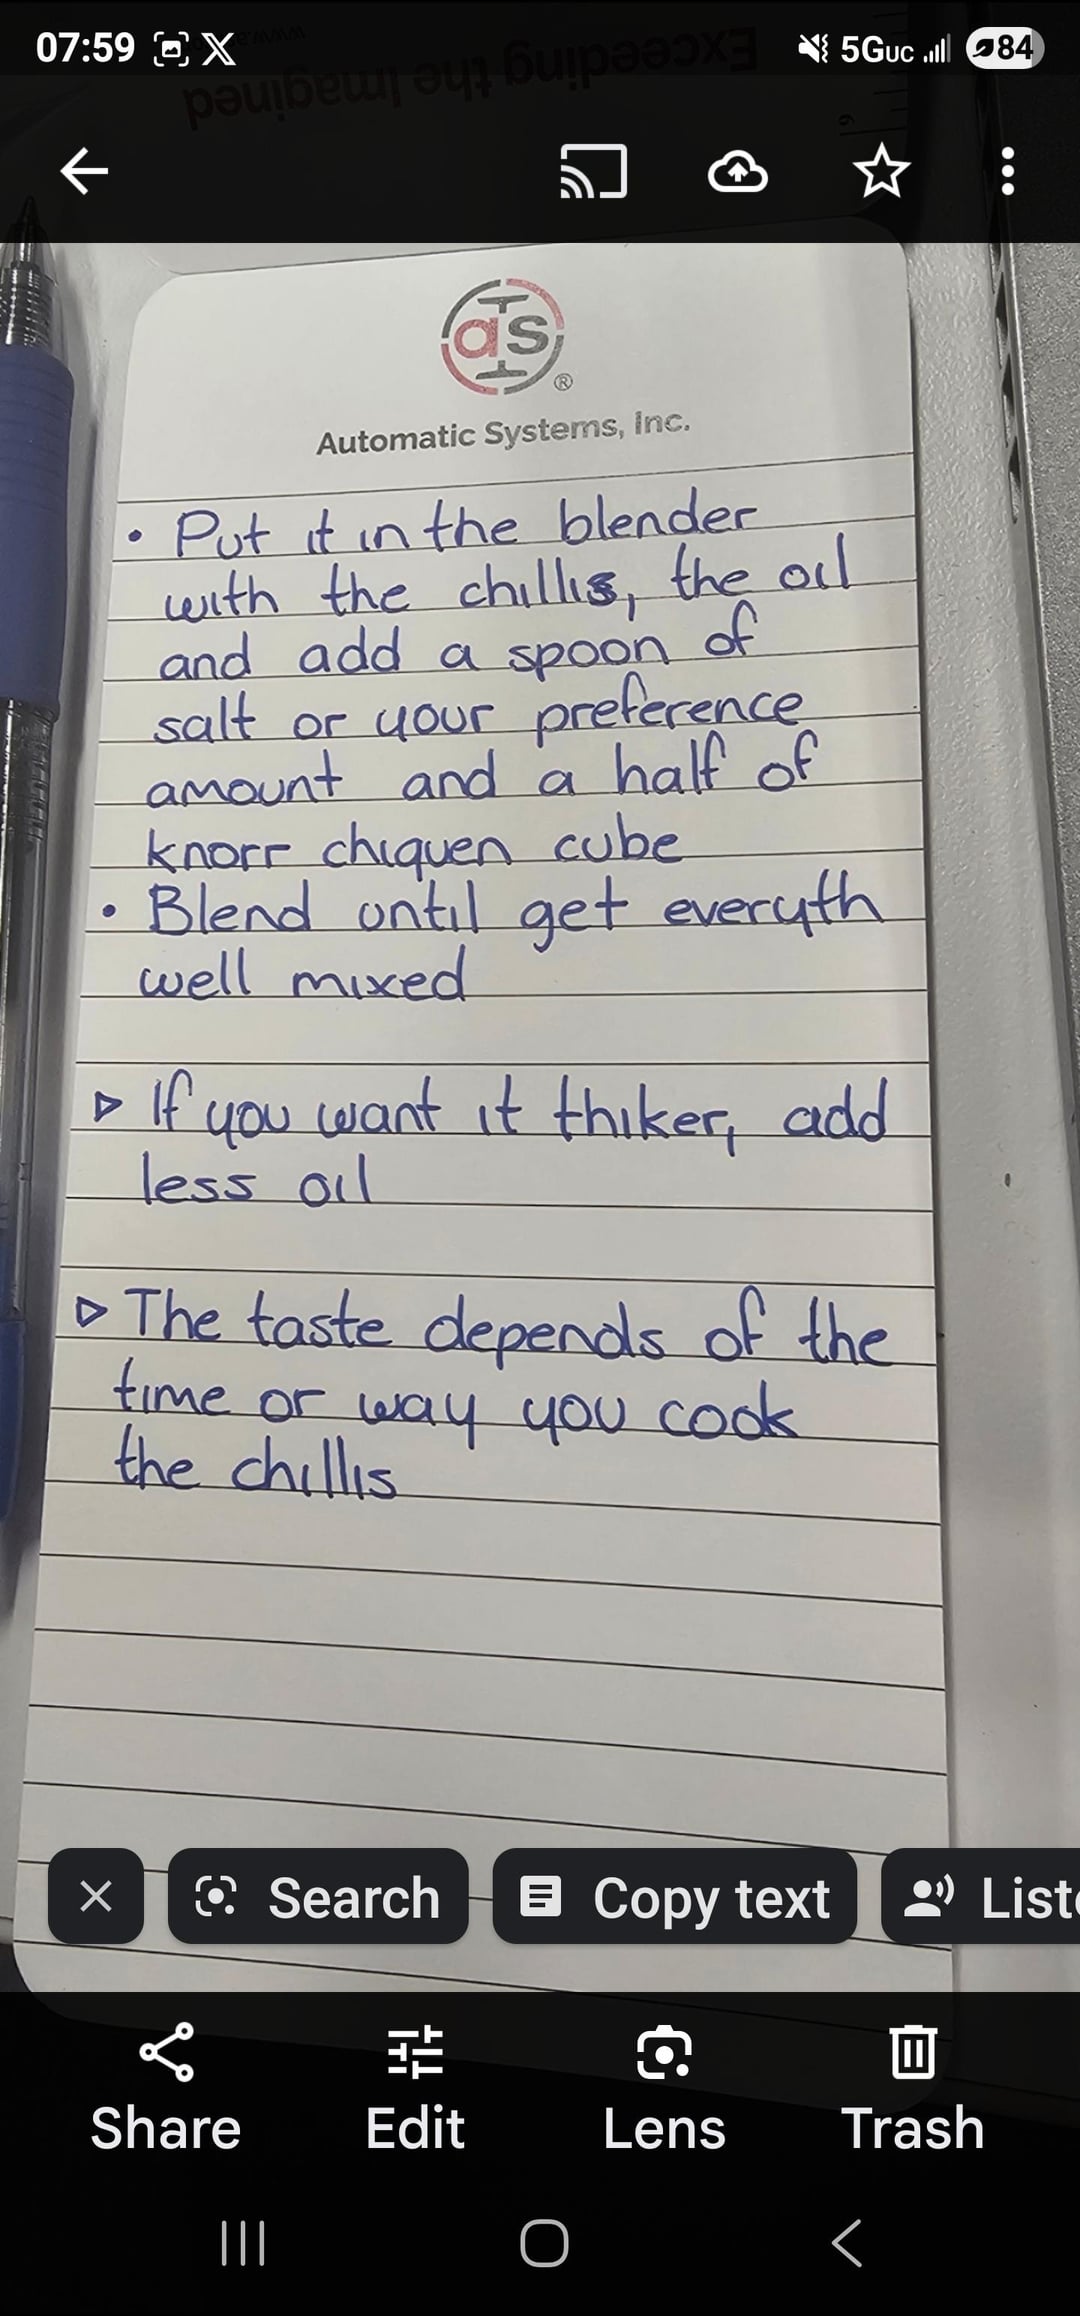 07:59
5GUC
84
Exceeding the Imagined
Automatic Systems, Inc.
• Put it in the blender
with the chillis, the oil
and add a spoon of
salt or your preference
amount and a half of
knorr chiquen cube
• Blend until get everyth
well mixed
▷ If you want it thiker, add
less oil
▷ The taste depends of the
time or way you cook
the chillis
Search
Copy text
Share
Edit
Lens
Trash